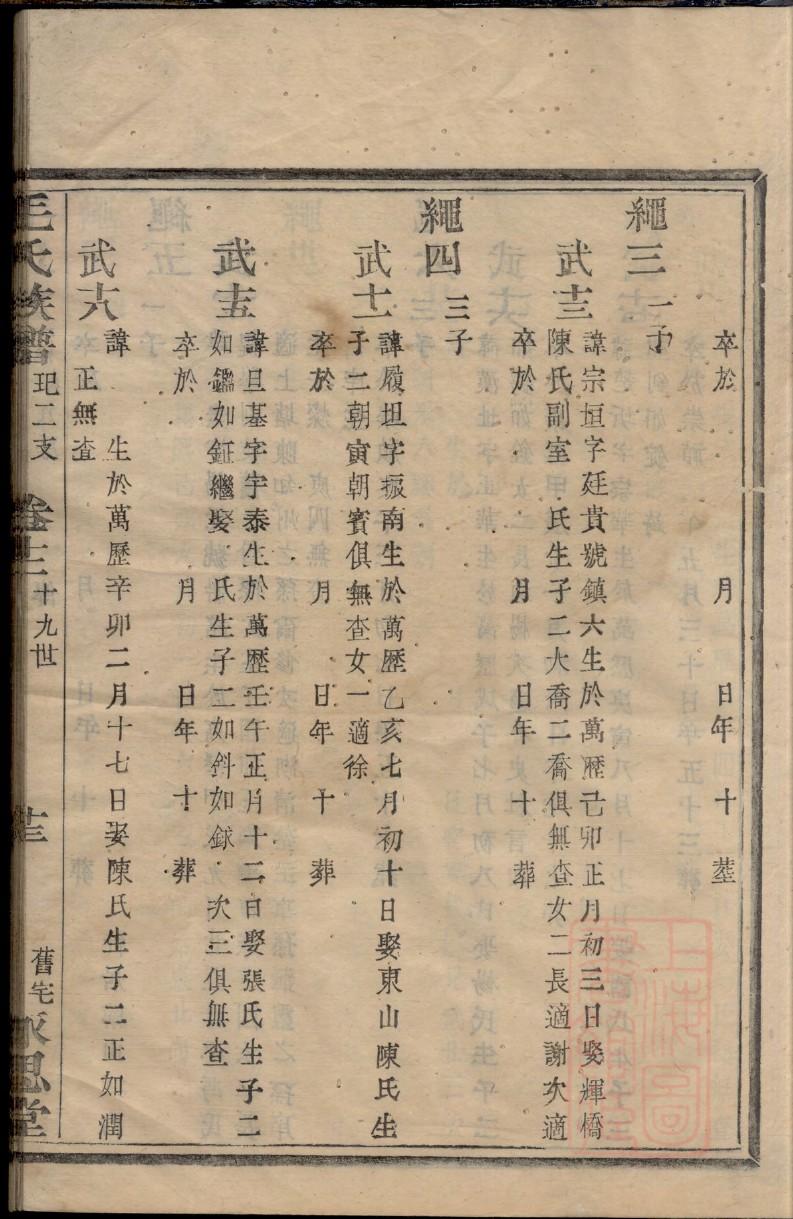 卒於 月 日年 十 塟
繩三 一子
武十三 諱宗垣字廷貴號鎮六生於萬歷己卯正月初三日娶輝橋
陳氏副室 氏生子二大喬二喬俱無查女二長適謝次適
卒於 月 日年 十 葬
繩四 三子
武十一 諱履坦字振南生於萬歷乙亥七月初十日娶東山陳氏生
子二朝寅朝賓俱無查女一適徐
卒於 月 日年 十 葬
武十五 諱旦基字宇泰生於萬歷壬午正月十二日娶張氏生子二
如鑑如鉦繼娶 氏生子二如鈄如銶 次三俱無查
卒於 月 日年 十 葬
武十六 諱 生於萬歷辛卯二月十七日娶陳氏生子二正如潤
正無查
毛氏族譜 玘二支 卷十二 十九世 十三 舊宅永思堂